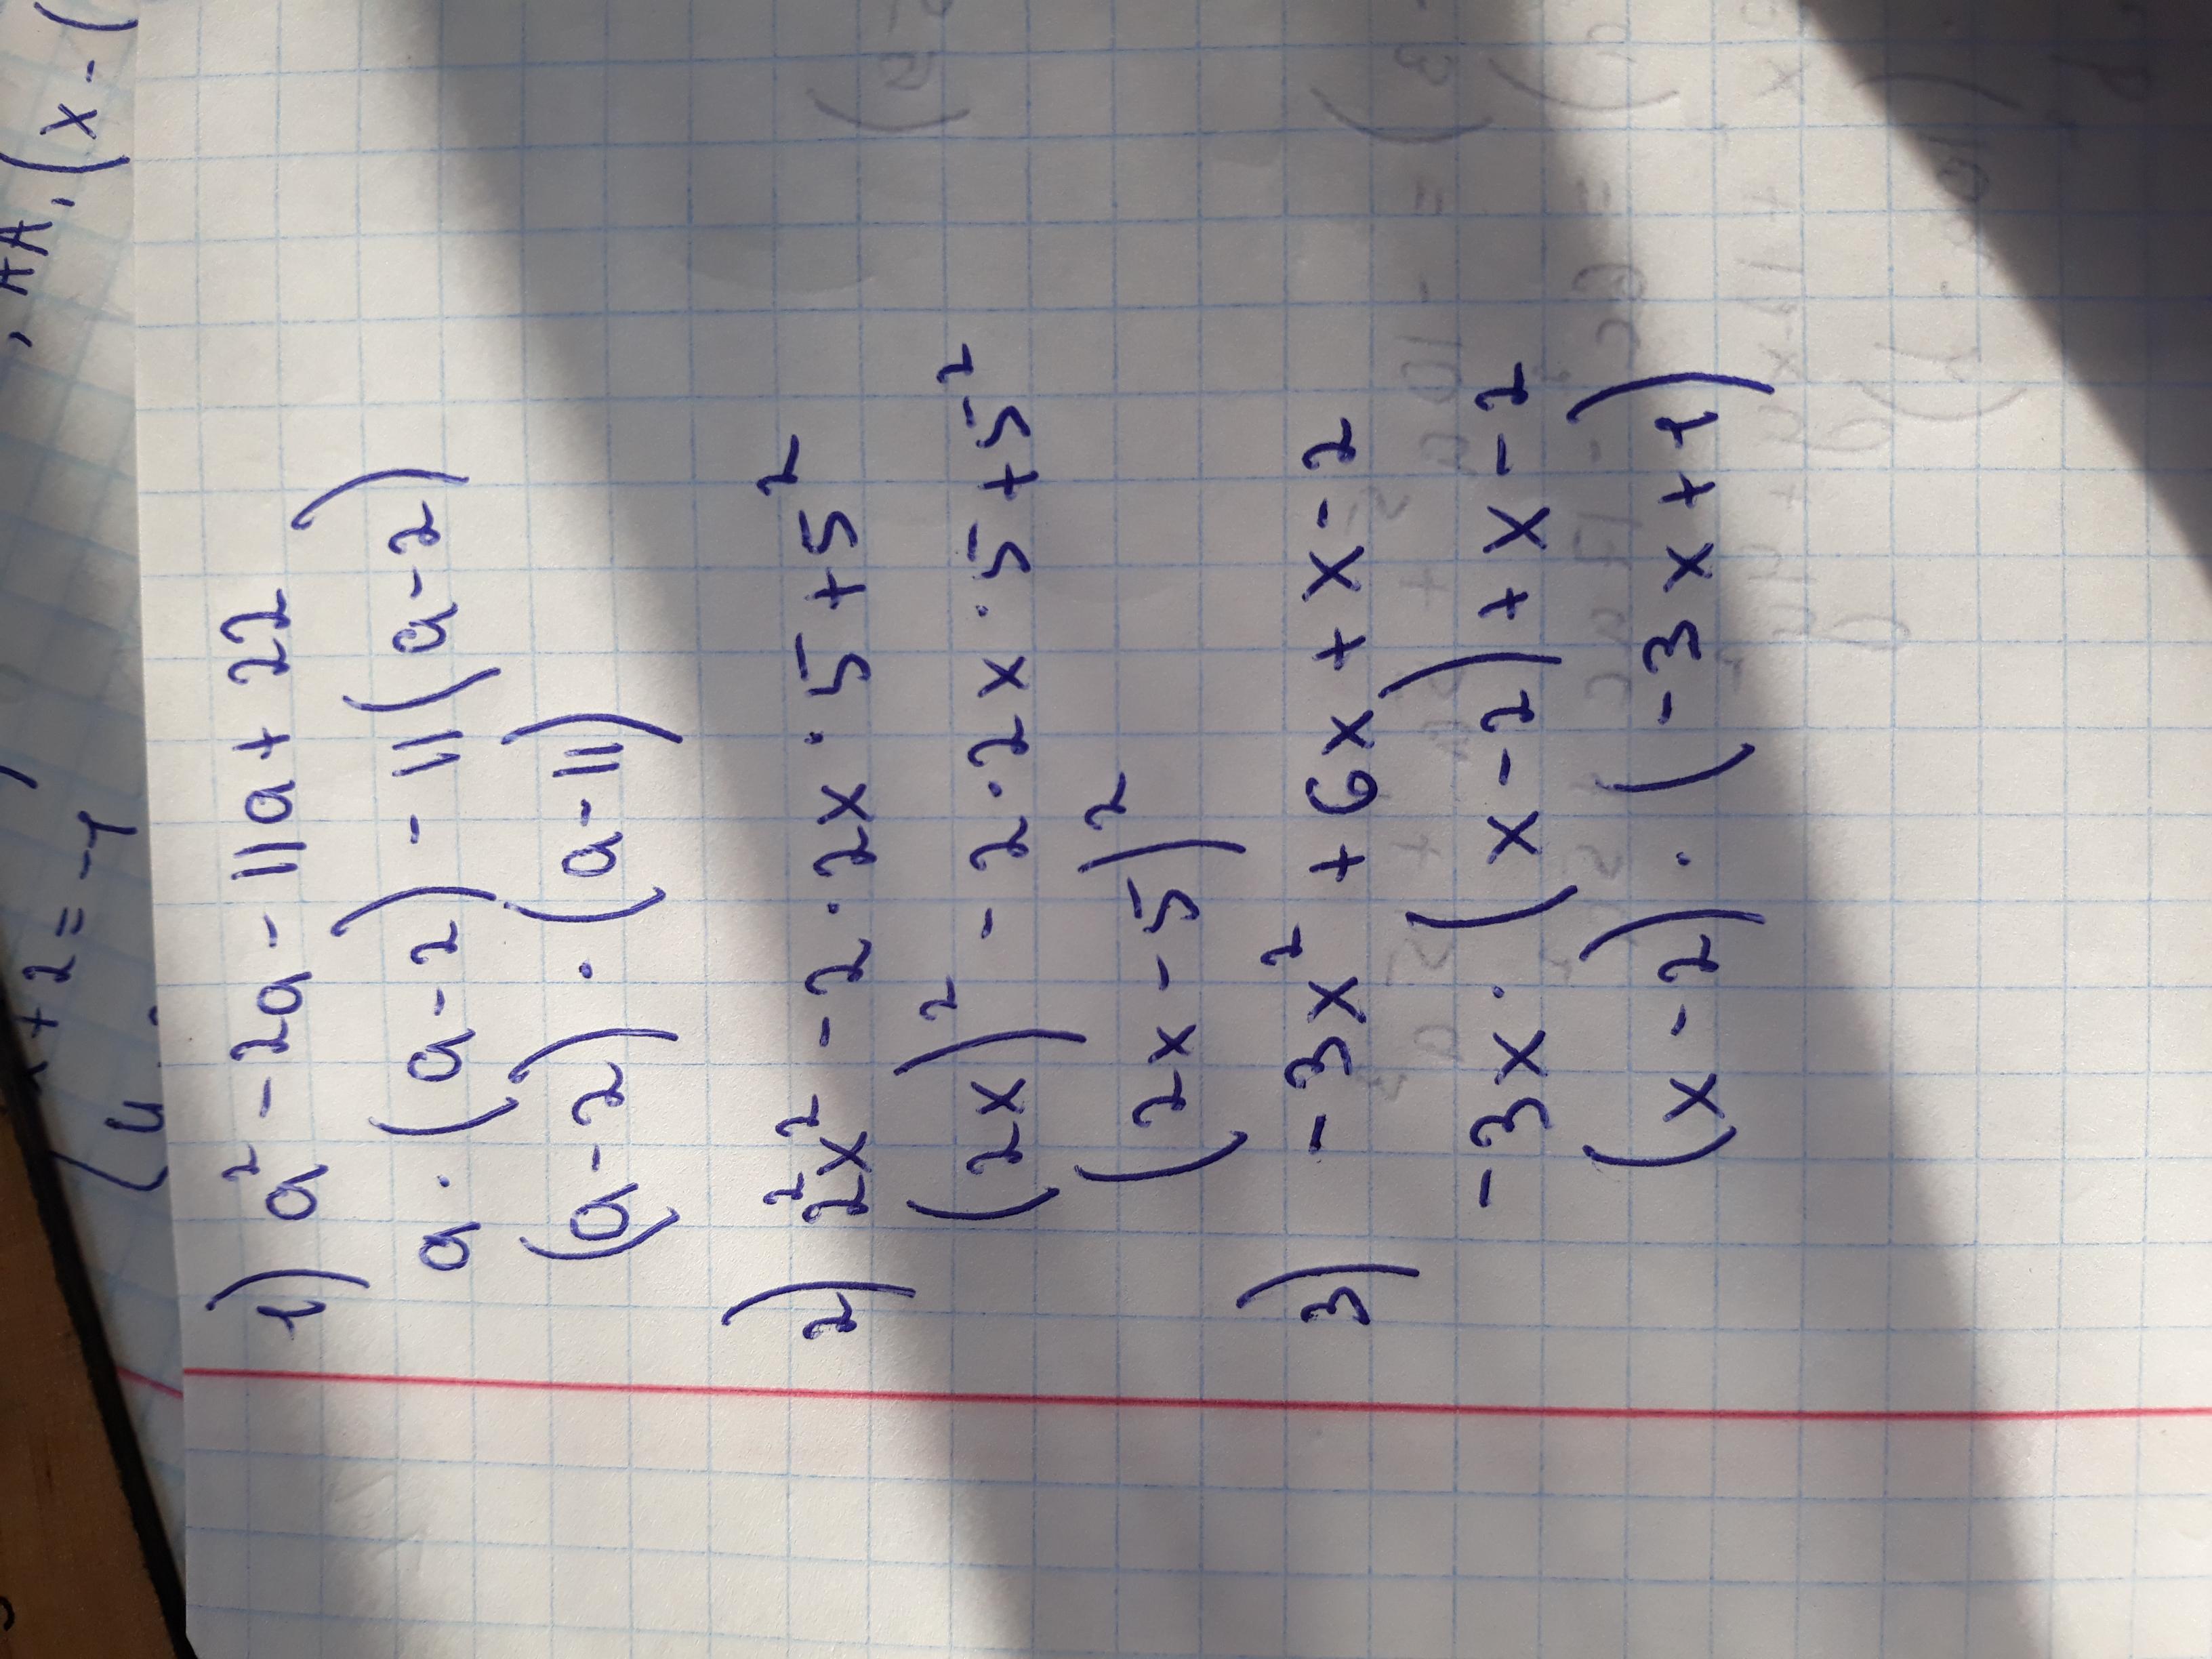 1) a² - 2a - 11a + 22
a · (a - 2) - 11 (a - 2)
(a - 2) · (a - 11)
2) 2²x² - 2 · 2x · 5 + 5²
(2x)² - 2 · 2x · 5 + 5²
(2x - 5)²
3) - 3x² + 6x + x - 2
-3x · (x - 2) + x - 2
(x - 2) · (-3x + 1)
x + 2 = -1
, AA, (x - (